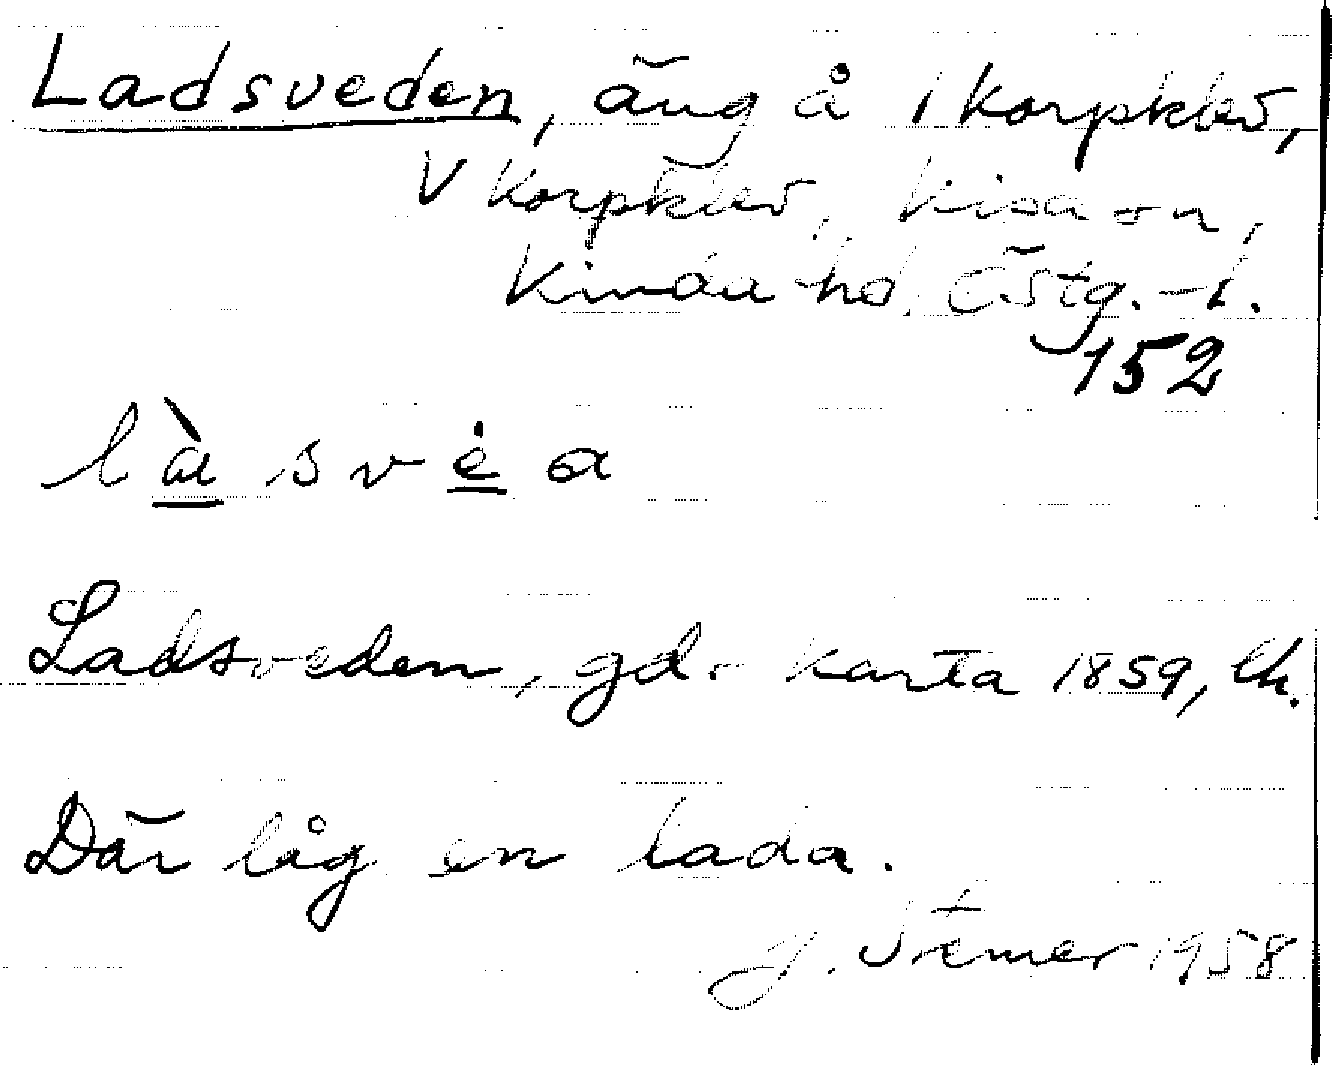 Ladsveden, äng å 1 Korpklev,
V Korpklev, Kisa sn,
Kinda hd, Östg. l.
152
là svė a
Ladsveden, gd. karta 1859, lk.
Där låg en lada.
J. Stemer 1958